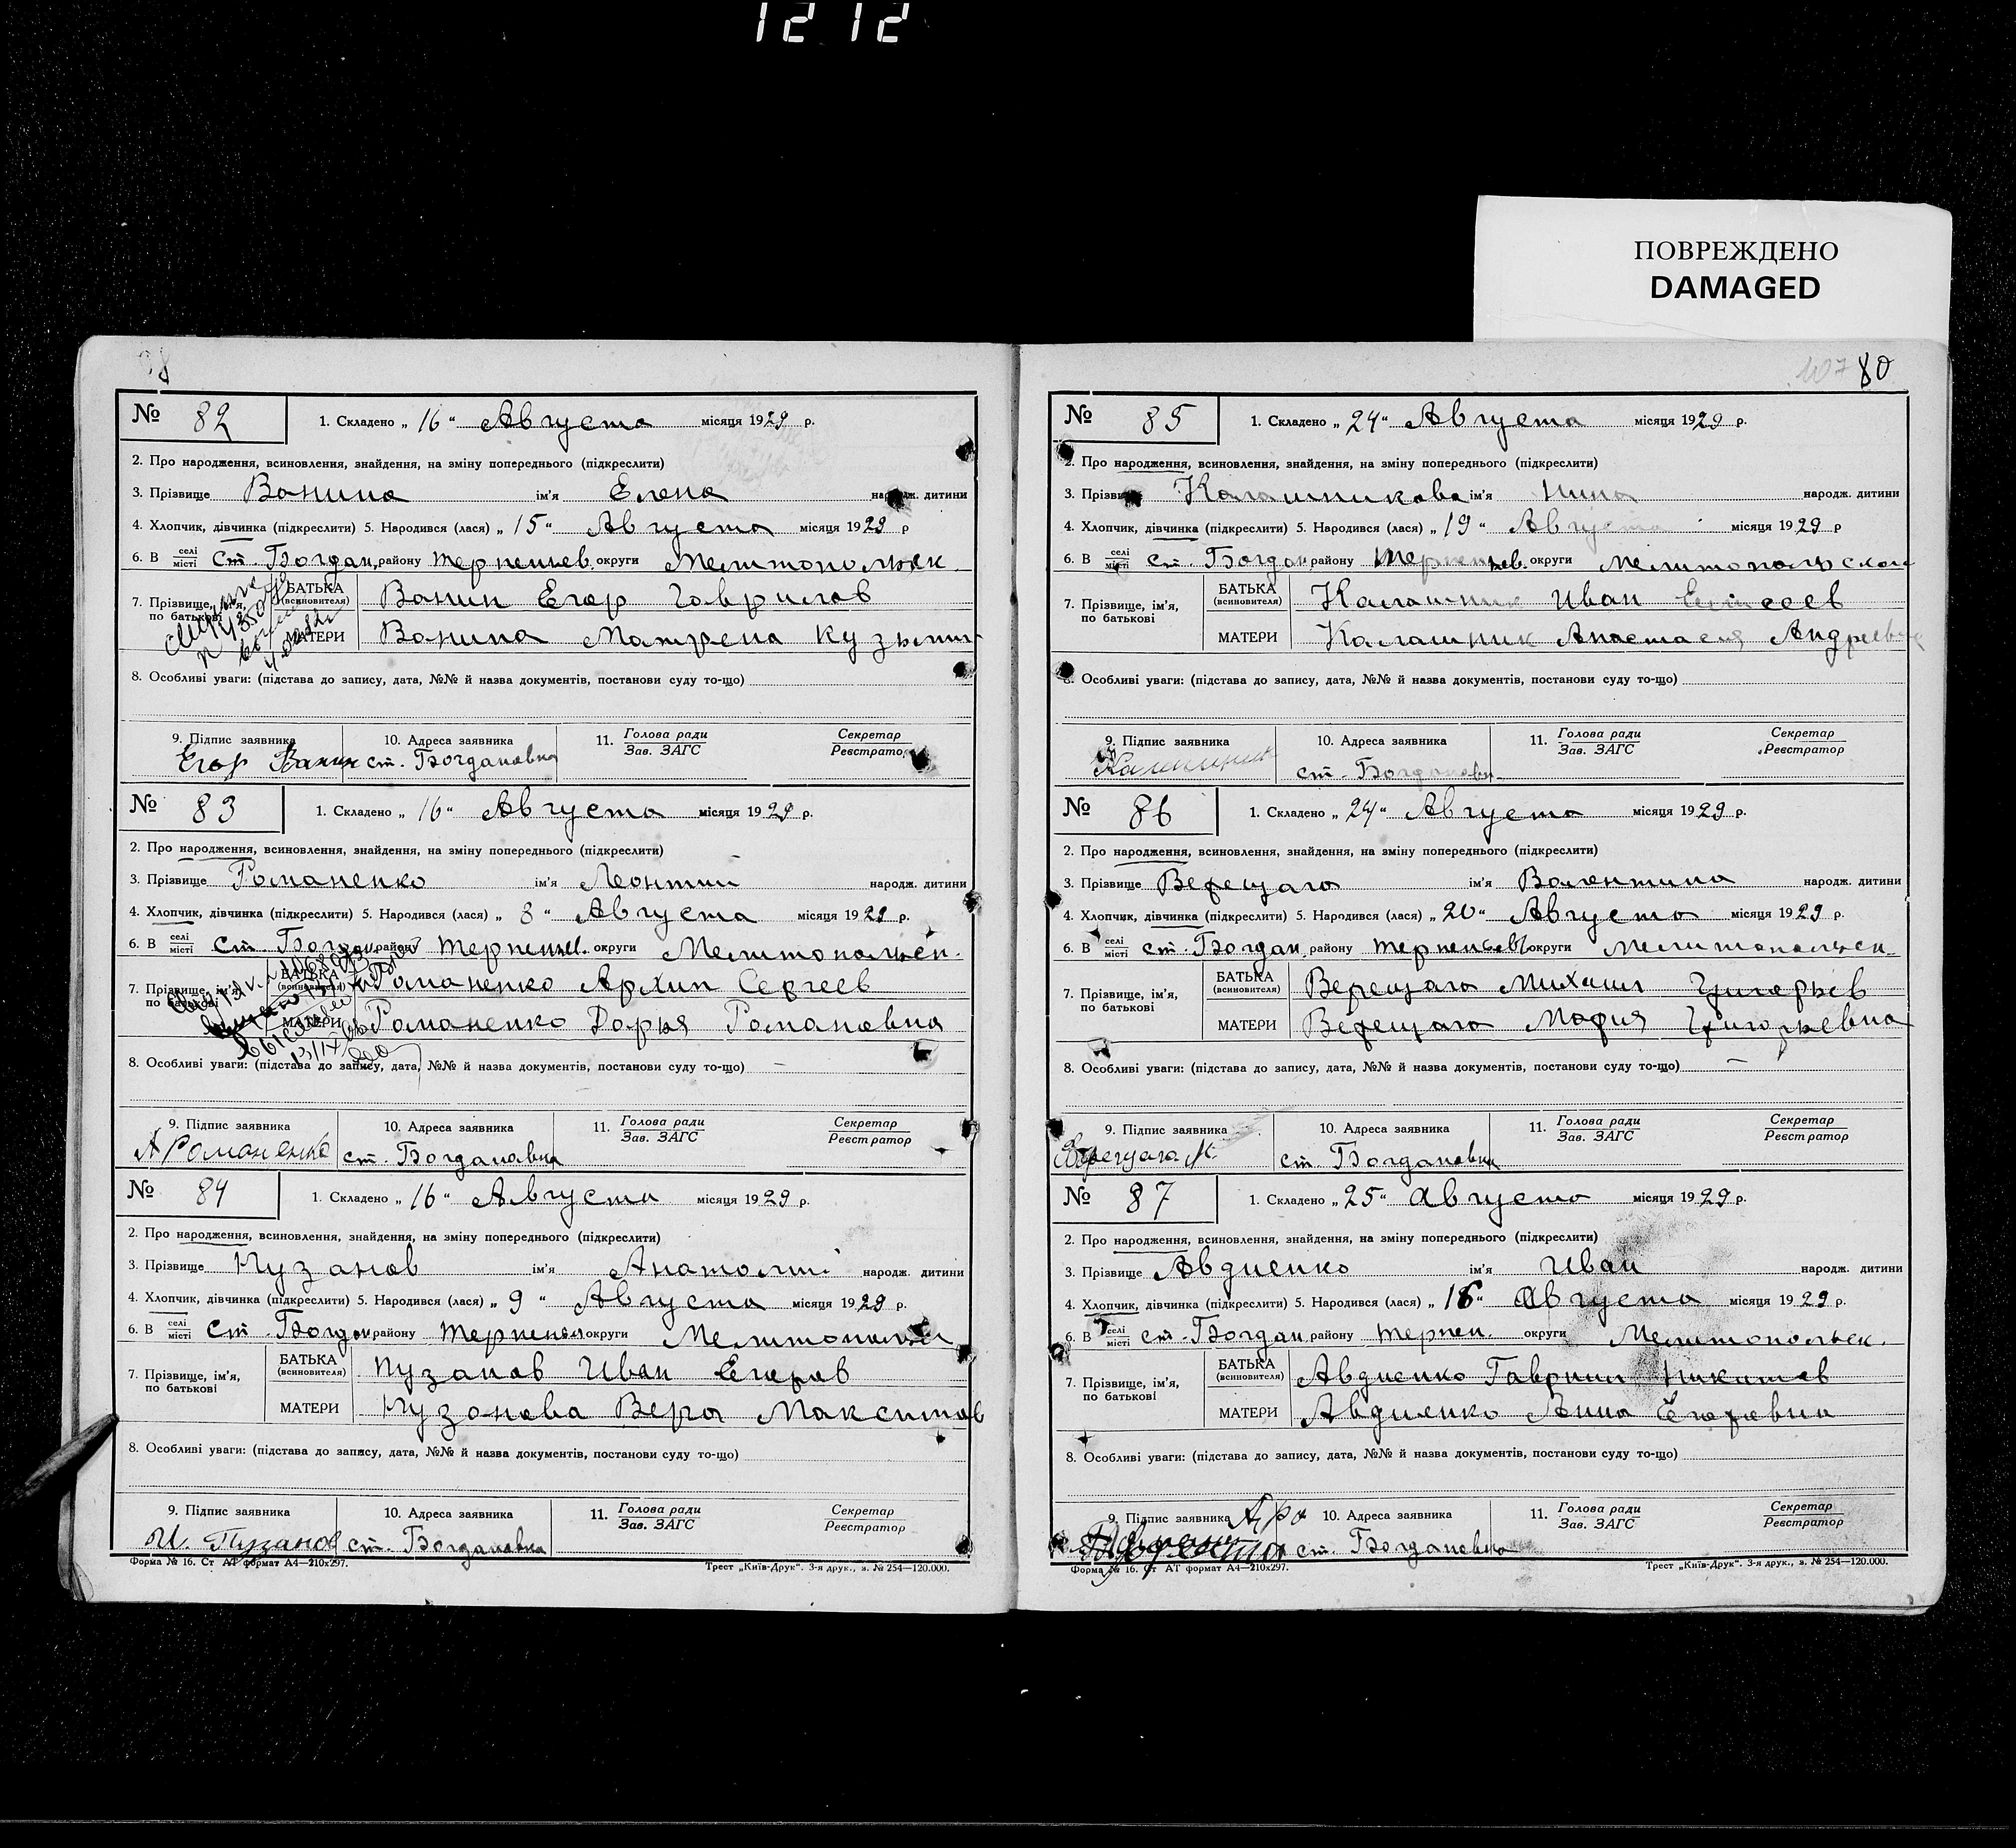 1212
ПОВРЕЖДЕНО
DAMAGED
№ 82 1. Складено „16“ Августа місяця 1929 р.
2. Про народження, всиновлення, знайдення, на зміну попереднього (підкреслити)
3. Прізвище Ванина ім'я Елена народж. дитини
4. Хлопчик, дівчинка (підкреслити) 5. Народився (лася) „15“ Августа місяця 1929 р
6. В селі місті ст. Богдан. району Терпеньев. округи Мелитопольск.
7. Прізвище, ім'я, по батькові
БАТЬКА (всиновителя) Ванин Егор Гаврилов
МАТЕРИ Ванина Матрена Кузьмин
8. Особливі уваги: (підстава до запису, дата, №№ й назва документів, постанови суду то-що)
9. Підпис заявника 10. Адреса заявника 11. Голова ради Зав. ЗАГС Секретар Реєстратор
Егор Ванин ст. Богдановка
№ 83 1. Складено „16“ Августа місяця 1929 р.
2. Про народження, всиновлення, знайдення, на зміну попереднього (підкреслити)
3. Прізвище Романенко ім'я Леонтий народж. дитини
4. Хлопчик, дівчинка (підкреслити) 5. Народився (лася) „8“ Августа місяця 1929 р.
6. В селі місті ст. Богдан району Терпеньев. округи Мелитопольск.
7. Прізвище, ім'я, по батькові
БАТЬКА (всиновителя) Романенко Архип Сергеев
МАТЕРИ Романенко Дарья Романовна
8. Особливі уваги: (підстава до запису, дата, №№ й назва документів, постанови суду то-що) —
9. Підпис заявника 10. Адреса заявника 11. Голова ради Зав. ЗАГС Секретар Реєстратор
А Романенко ст. Богдановка
№ 84 1. Складено „16“ Августа місяця 1929 р.
2. Про народження, всиновлення, знайдення, на зміну попереднього (підкреслити)
3. Прізвище Пузанов ім'я Анатолий народж. дитини
4. Хлопчик, дівчинка (підкреслити) 5. Народився (лася) „9“ Августа місяця 1929 р.
6. В селі місті ст. Богдан району Терпеньев округи Мелитопольск
7. Прізвище, ім'я, по батькові
БАТЬКА (всиновителя) Пузанов Иван Егоров
МАТЕРИ Пузанова Вера Максимов
8. Особливі уваги: (підстава до запису, дата, №№ й назва документів, постанови суду то-що)
9. Підпис заявника 10. Адреса заявника 11. Голова ради Зав. ЗАГС Секретар Реєстратор
И. Пузанов ст. Богдановка
Форма № 16. Ст АТ формат А4—210x297. Трест „Київ-Друк“. 3-я друк., з. № 254—120.000.
107 80
№ 85 1. Складено „24“ Августа місяця 1929 р.
2. Про народження, всиновлення, знайдення, на зміну попереднього (підкреслити)
3. Прізвище Калашникова ім'я Нина народж. дитини
4. Хлопчик, дівчинка (підкреслити) 5. Народився (лася) „19“ Августа місяця 1929 р
6. В селі місті ст. Богдан району Терпеньев. округи Мелитопольской
7. Прізвище, ім'я, по батькові
БАТЬКА (всиновителя) Калашник Иван Елисеев
МАТЕРИ Калашник Анастасия Андреевна
8. Особливі уваги: (підстава до запису, дата, №№ й назва документів, постанови суду то-що)
9. Підпис заявника 10. Адреса заявника 11. Голова ради Зав. ЗАГС Секретар Реєстратор
ст. Богдановк
№ 86 1. Складено „24“ Августа місяця 1929 р.
2. Про народження, всиновлення, знайдення, на зміну попереднього (підкреслити)
3. Прізвище Верещага ім'я Валентина народж. дитини
4. Хлопчик, дівчинка (підкреслити) 5. Народився (лася) „20“ Августа місяця 1929 р.
6. В селі місті ст. Богдан. району Терпеньев округи Мелитопольск.
7. Прізвище, ім'я, по батькові
БАТЬКА (всиновителя) Верещага Михаил Григорьев
МАТЕРИ Верещага Мария Григорьевна
8. Особливі уваги: (підстава до запису, дата, №№ й назва документів, постанови суду то-що) —
9. Підпис заявника 10. Адреса заявника 11. Голова ради Зав. ЗАГС Секретар Реєстратор
Верещага М. ст. Богдановка
№ 87 1. Складено „25“ Августа місяця 1929 р.
2. Про народження, всиновлення, знайдення, на зміну попереднього (підкреслити)
3. Прізвище Авдиенко ім'я Иван народж. дитини
4. Хлопчик, дівчинка (підкреслити) 5. Народився (лася) „18“ Августа місяця 1929 р.
6. В селі місті ст. Богдан. району Терпен. округи Мелитопольск.
7. Прізвище, ім'я, по батькові
БАТЬКА (всиновителя) Авдиенко Гаврилл Никитов
МАТЕРИ Авдиенко Анна Егоровна
8. Особливі уваги: (підстава до запису, дата, №№ й назва документів, постанови суду то-що)
9. Підпис заявника 10. Адреса заявника 11. Голова ради Зав. ЗАГС Секретар Реєстратор
ст. Богдановка
Форма № 16. Ст АТ формат А4—210x297. Трест „Київ-Друк“. 3-я друк., з. № 254—120.000.